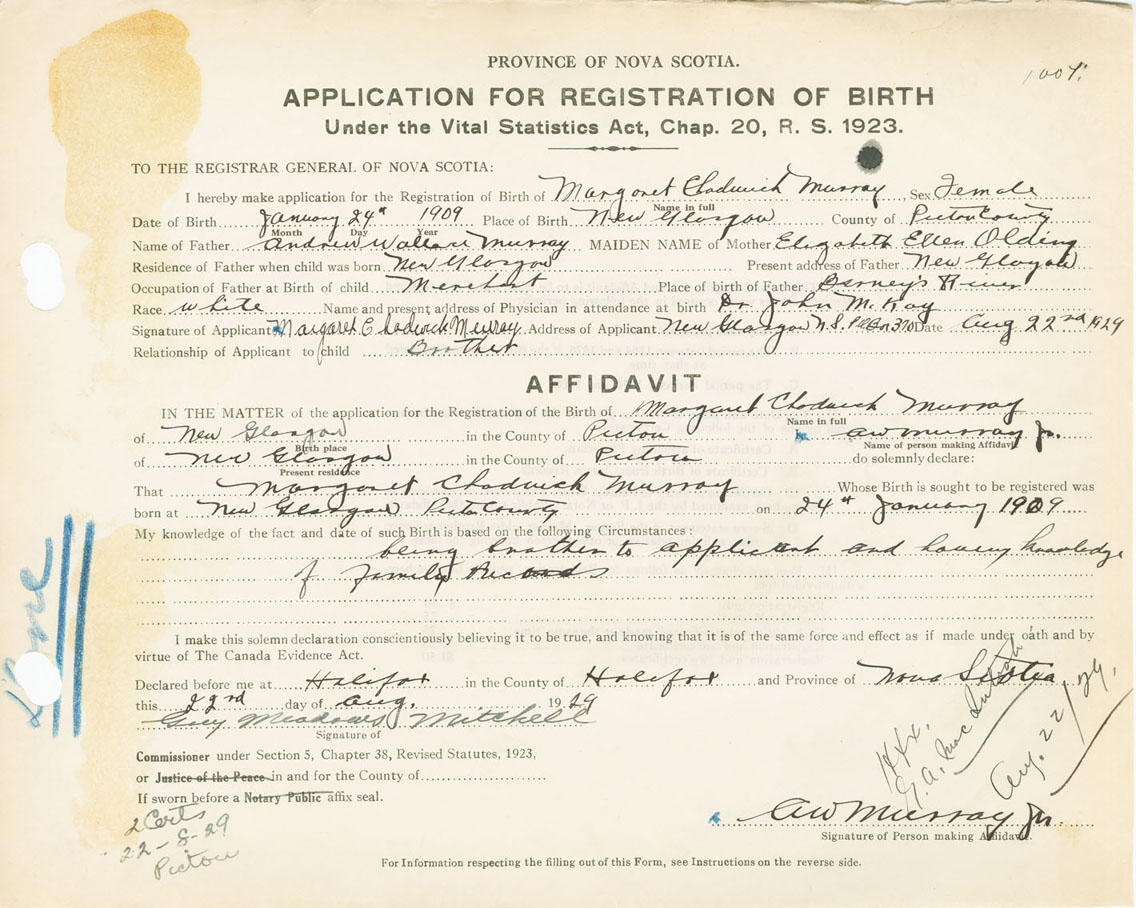 PROVINCE OF NOVA SCOTIA.
APPLICATION FOR REGISTRATION OF BIRTH
Under the Vital Statistics Act, Chap. 20, R. S. 1923.
TO THE REGISTRAR GENERAL OF NOVA SCOTIA:
I hereby make application for the Registration of Birth of Margaret Chadwick Murray Sex Female
Name in full
Date of Birth January 24th 1909 Place of Birth New Glasgow County of Pictou County
Month Day Year
Name of Father Andrew Wallace Murray MAIDEN NAME of Mother Elizabeth Ellen Olding
Residence of Father when child was born New Glasgow Present address of Father New Glasgow
Occupation of Father at Birth of child Merchant Place of birth of Father Barney's River
Race white Name and present address of Physician in attendance at birth Dr. John McKay
Signature of Applicant Margaret Chadwick Murray Address of Applicant New Glasgow N.S. Box 370 Date Aug 22nd 1929
Relationship of Applicant to child Brother
AFFIDAVIT
IN THE MATTER of the application for the Registration of the Birth of Margaret Chadwick Murray
Name in full
of New Glasgow in the County of Pictou AW Murray Jr.
Birth place Name of person making Affidavit
of New Glasgow in the County of Pictou do solemnly declare:
Present residence
That Margaret Chadwick Murray Whose Birth is sought to be registered was
born at New Glasgow Pictou County on 24th January 1909
My knowledge of the fact and date of such Birth is based on the following Circumstances:
being brother to applicant and having knowledge
of Family Records
I make this solemn declaration conscientiously believing it to be true, and knowing that it is of the same force and effect as if made under oath and by
virtue of The Canada Evidence Act.
Declared before me at Halifax in the County of Halifax and Province of Nova Scotia
this 22nd day of Aug. 1929
Guy Meadows Mitchell
Signature of
Commissioner under Section 5, Chapter 38, Revised Statutes, 1923,
or Justice of the Peace in and for the County of
If sworn before a Notary Public affix seal.
Hfx.
G.A. MacIntosh
Aug. 22/29.
2 Certs
22-8-29
Pictou
AW Murray Jr.
Signature of Person making Affidavit.
For Information respecting the filling out of this Form, see Instructions on the reverse side.